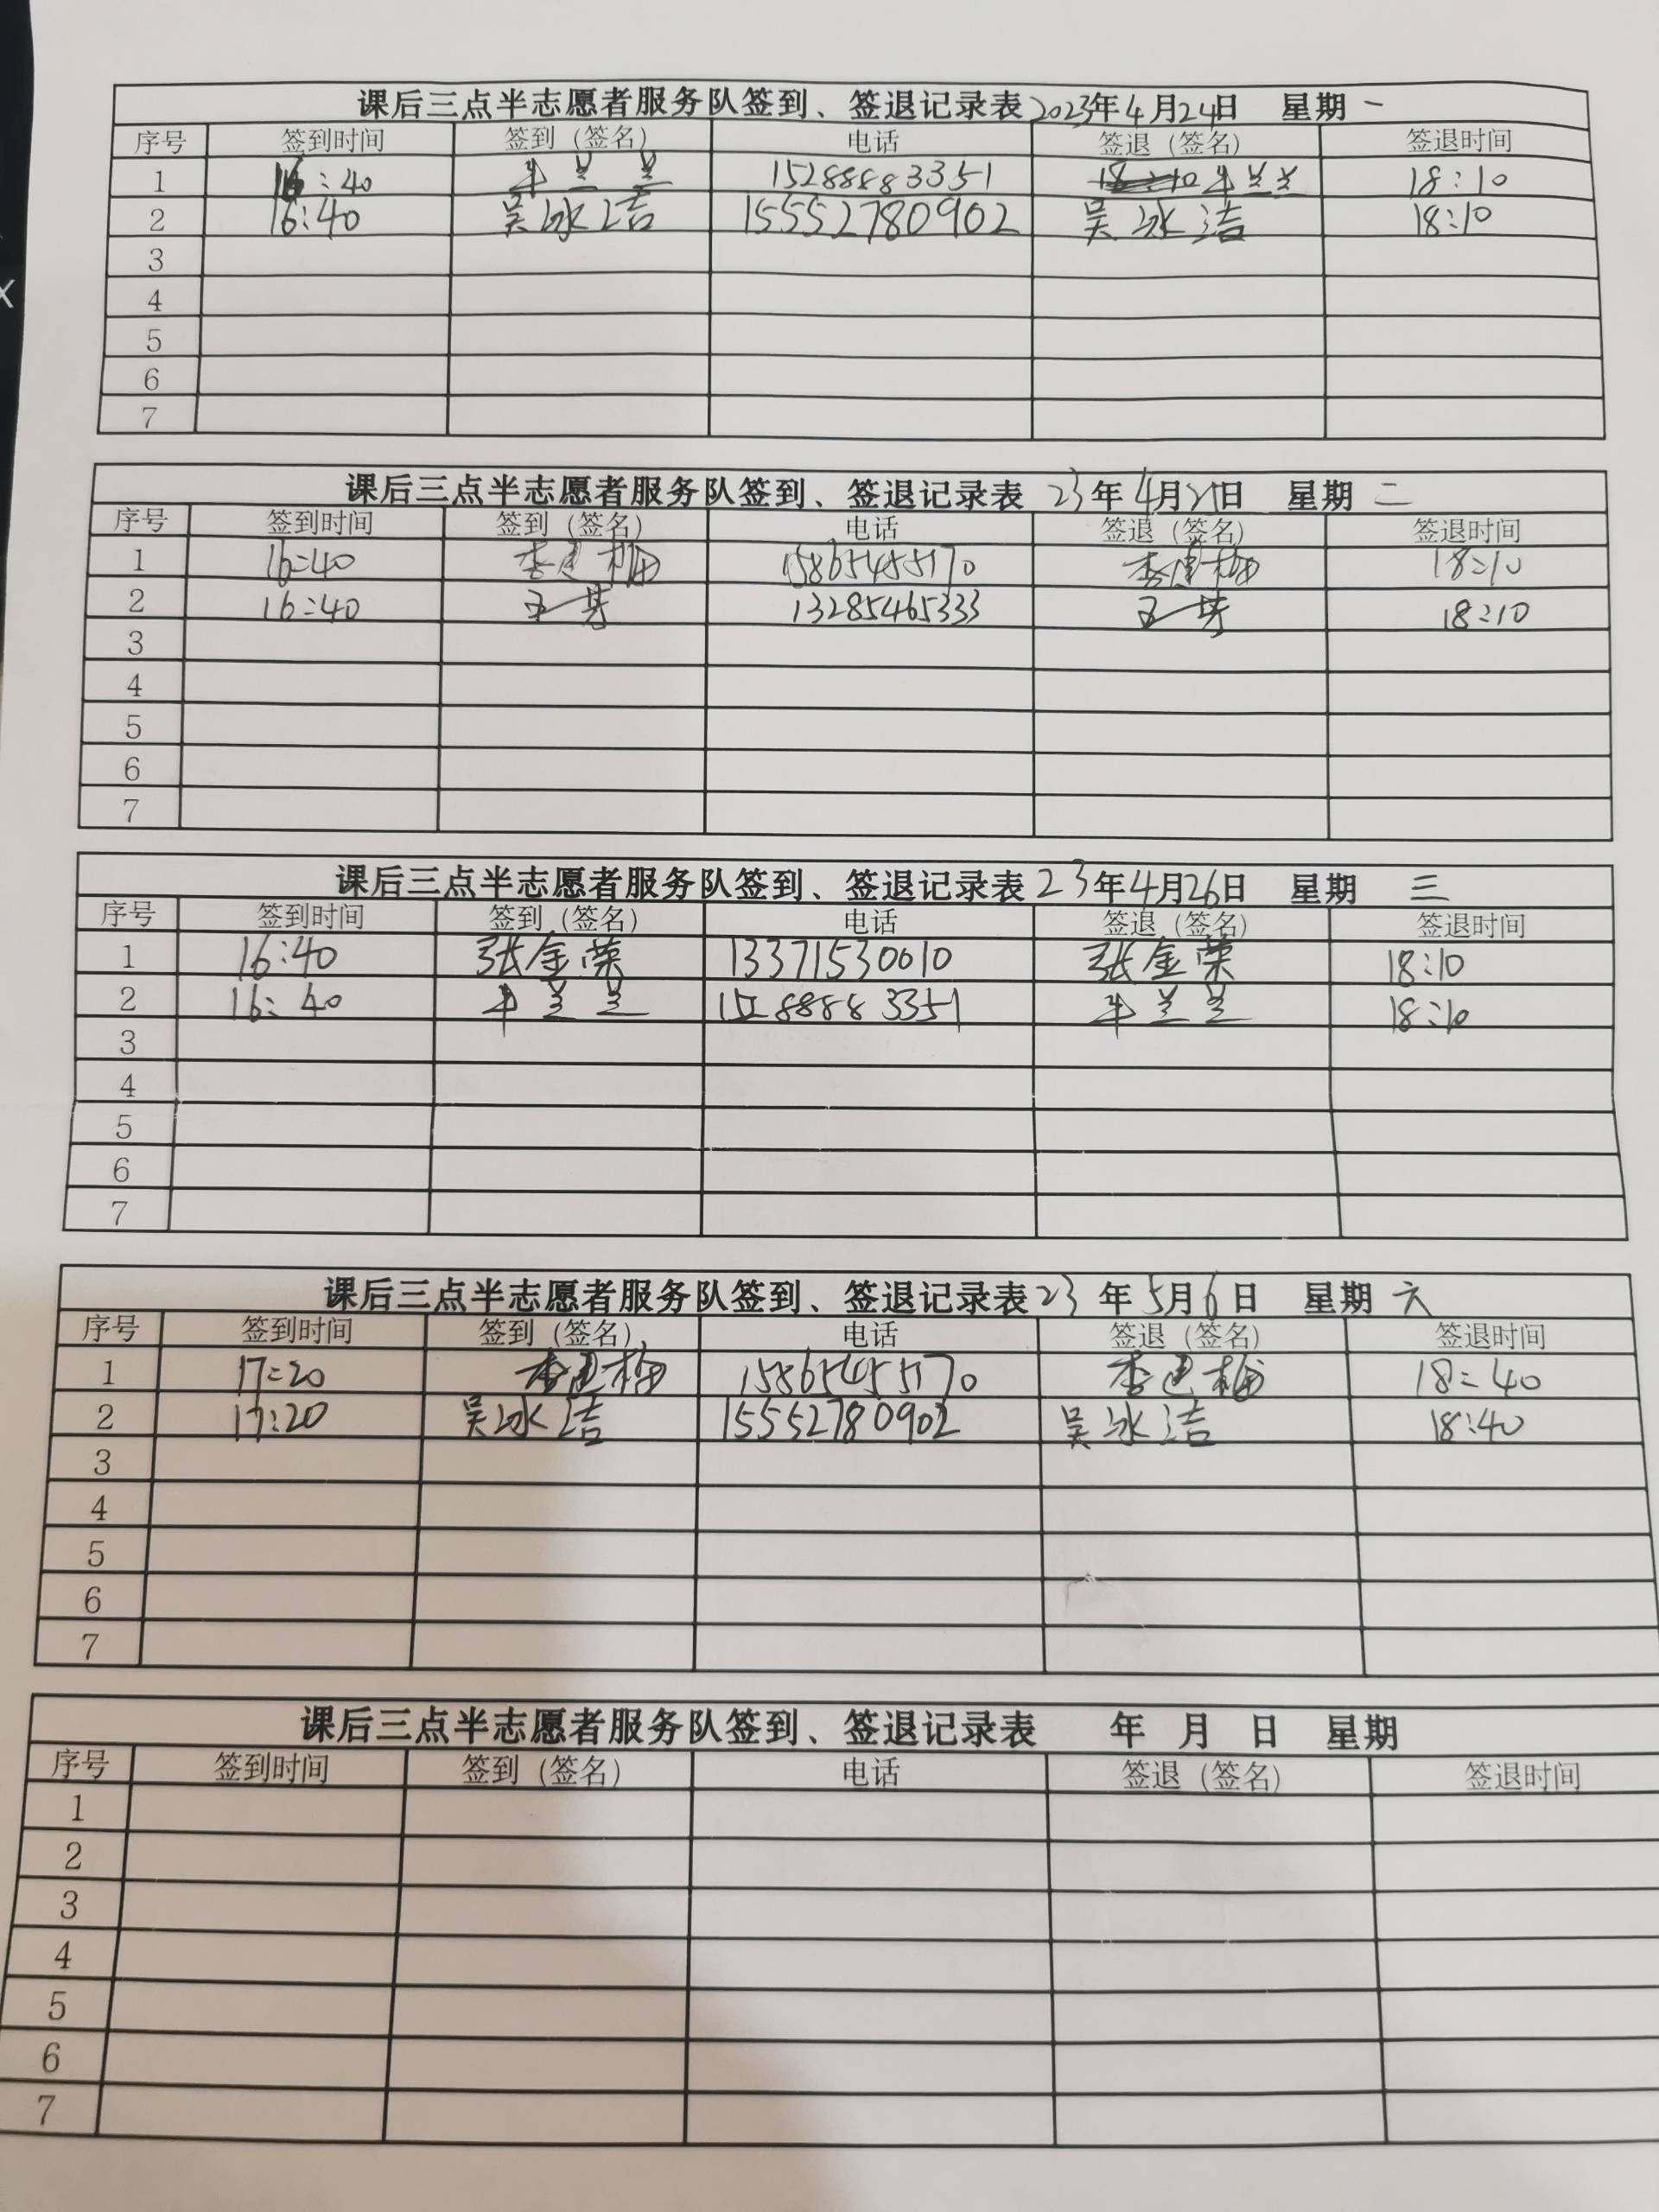 课后三点半志愿者服务队签到、签退记录表2023年4月24日 星期一
序号 签到时间 签到（签名） 电话 签退（签名） 签退时间
1 16:40 牛兰兰 15288883351 牛兰兰 18:10
2 16:40 吴冰洁 15552780902 吴冰洁 18:10
3
4
5
6
7
课后三点半志愿者服务队签到、签退记录表 23年4月25日 星期二
序号 签到时间 签到（签名） 电话 签退（签名） 签退时间
1 16:40 李建梅 15865455170 李建梅 18:10
2 16:40 王芳 13285465333 王芳 18:10
3
4
5
6
7
课后三点半志愿者服务队签到、签退记录表23年4月26日 星期 三
序号 签到时间 签到（签名） 电话 签退（签名） 签退时间
1 16:40 张金荣 13371530010 张金荣 18:10
2 16:40 牛兰兰 15288883351 牛兰兰 18:10
3
4
5
6
7
课后三点半志愿者服务队签到、签退记录表23年5月6日 星期六
序号 签到时间 签到（签名） 电话 签退（签名） 签退时间
1 17:20 李建梅 15865455170 李建梅 18:40
2 17:20 吴冰洁 15552780902 吴冰洁 18:40
3
4
5
6
7
课后三点半志愿者服务队签到、签退记录表 年 月 日 星期
序号 签到时间 签到（签名） 电话 签退（签名） 签退时间
1
2
3
4
5
6
7